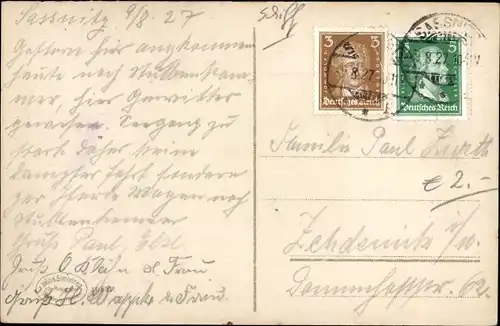 Sassnitz 9/8. 27
Gestern hier angekommen
heute nach Stubbenkam-
mer, hier Gewitter
gewesen. Seegang zu
stark daher keine
Dampferfahrt sondern
per Pferde Wagen nach
Stubbenkammer
Gruß Paul,
Gruß O. Kühn u Frau
Gruß u Frau
3
Deutsches Reich
5
Deutsches Reich
SASSNITZ
8.27
Familie Paul
€ 2.-
Zehdenick i/M.
Dammhaststr. 62.